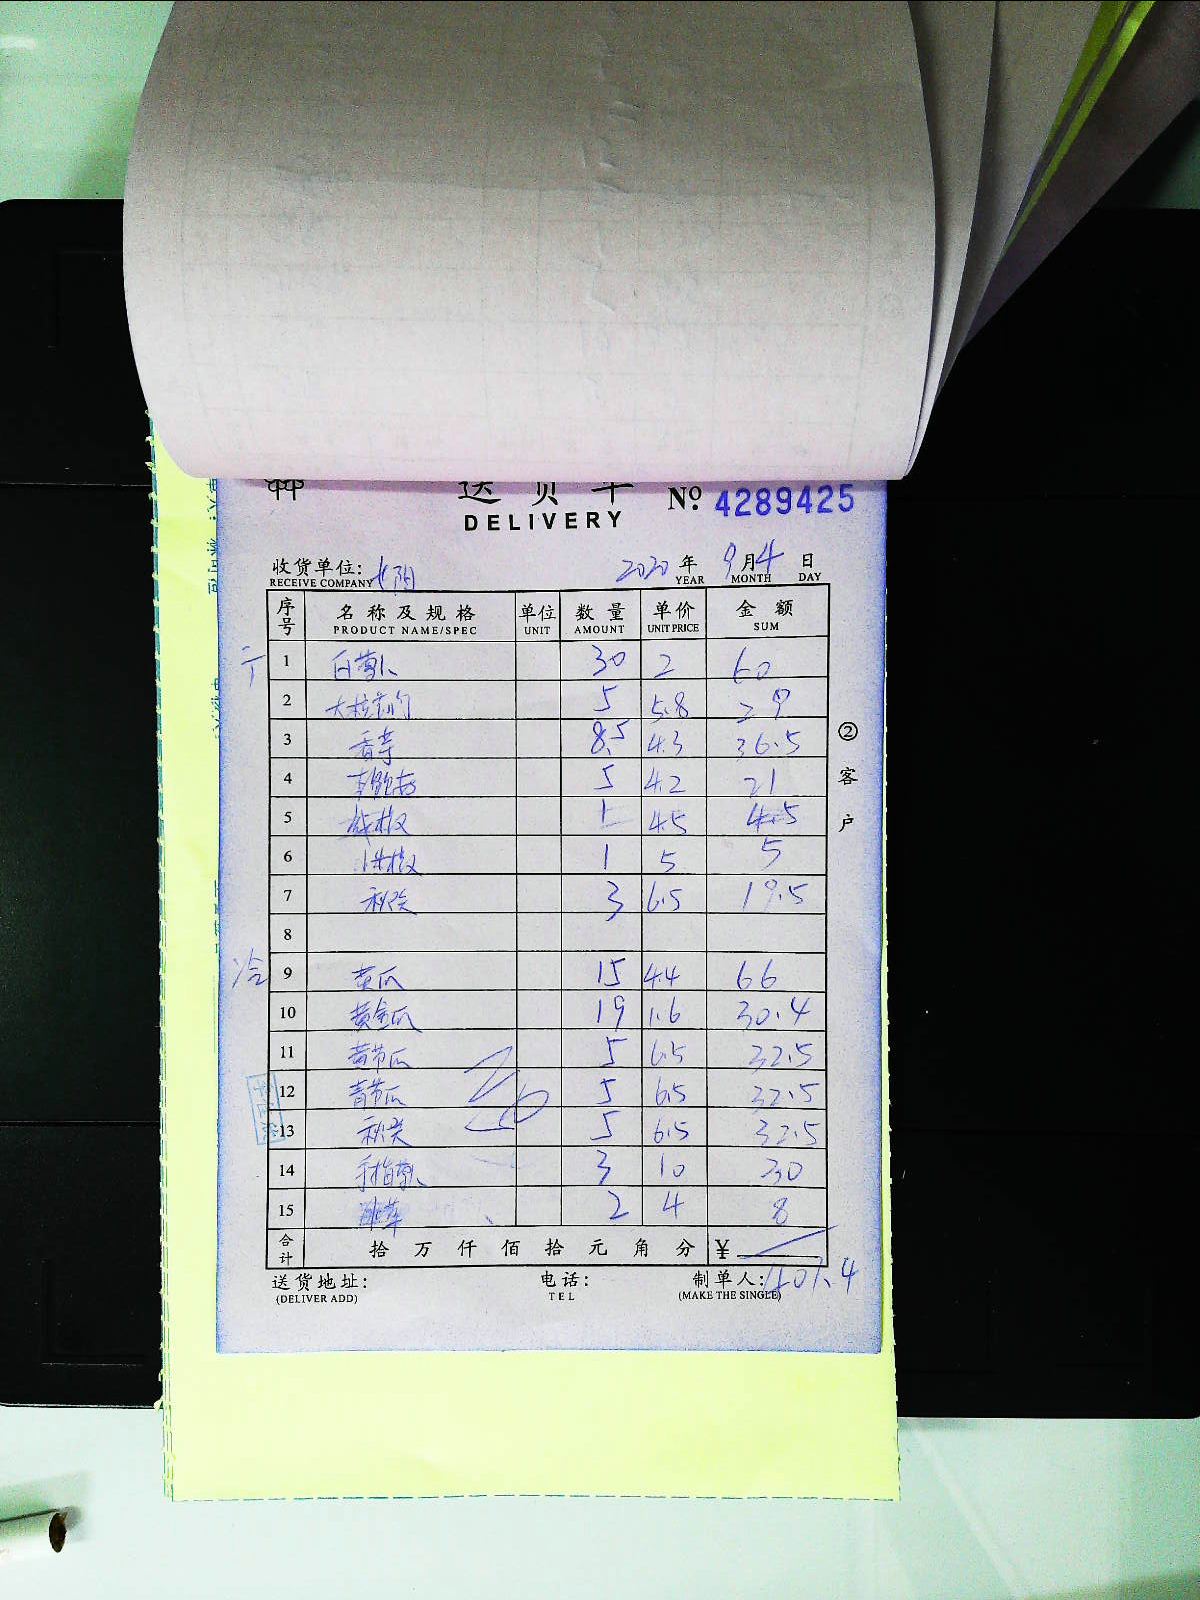 送货单
№ 4289425
DELIVERY
收货单位: 2020 年 9 月 4 日
RECEIVE COMPANY YEAR MONTH DAY
序号 名称及规格 单位 数量 单价 金额
PRODUCT NAME/SPEC UNIT AMOUNT UNIT PRICE SUM
1 白萝卜 30 2 60
2 5 5.8 29
3 香芋 8.5 4.3 36.5
4 5 4.2 21
5 1 4.5 4.5
6 1 5 5
7 秋葵 3 6.5 19.5
8
冷 9 黄瓜 15 4.4 66
10 黄金瓜 19 1.6 30.4
11 黄节瓜 5 6.5 32.5
12 青节瓜 5 6.5 32.5
13 秋葵 5 6.5 32.5
14 手指萝卜 3 10 30
15 2 4 8
合计 拾 万 仟 佰 拾 元 角 分 ¥
送货地址: 电话: 制单人:
(DELIVER ADD) TEL (MAKE THE SINGLE)
② 客户